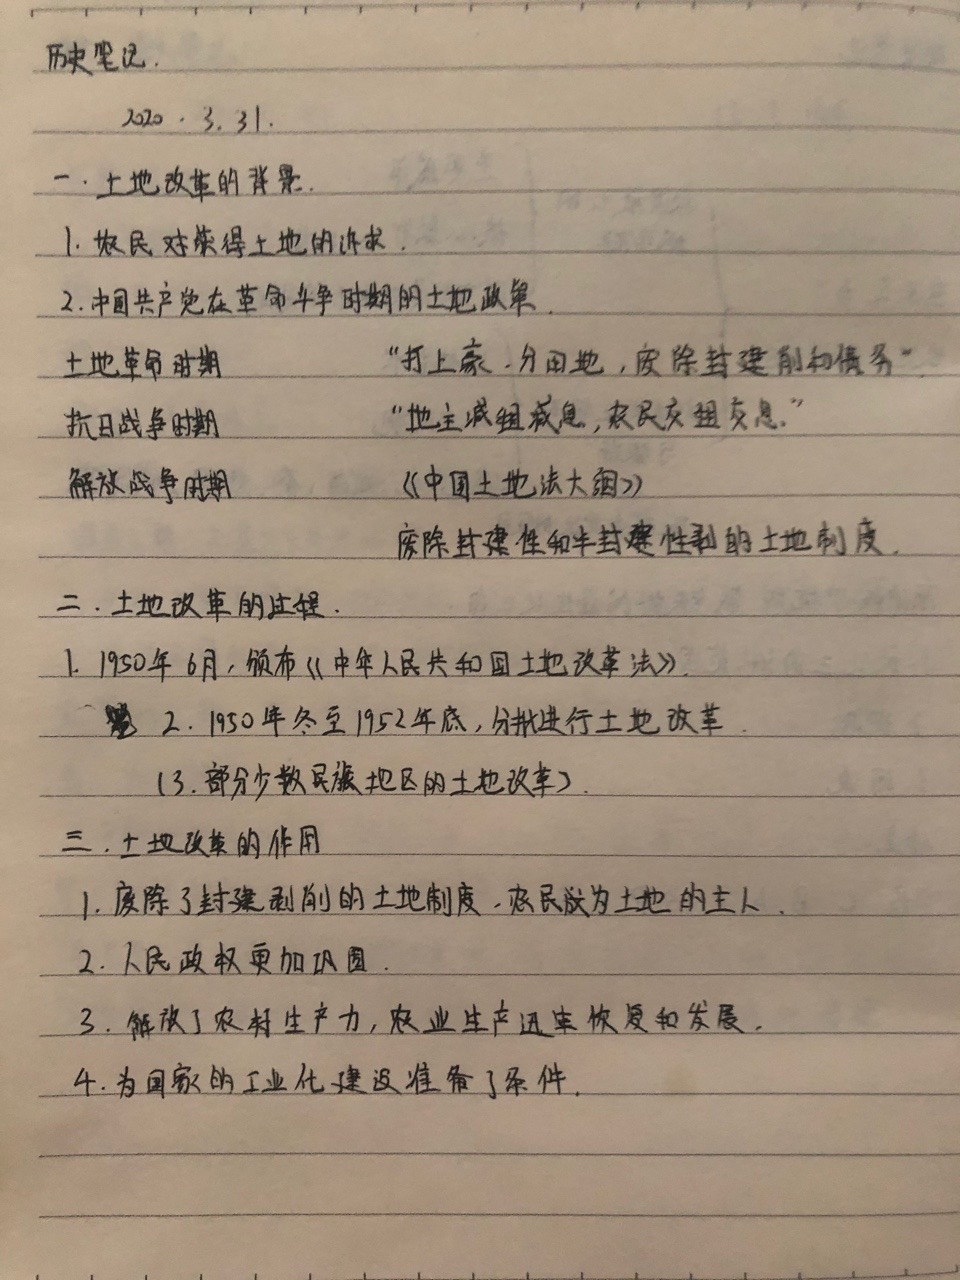 历史笔记.
2020.3.31.
一.土地改革的背景.
1.农民对获得土地的诉求.
2.中国共产党在革命斗争时期的土地政策.
土地革命时期 “打土豪.分田地,废除封建剥削和债务”.
抗日战争时期 “地主减租减息,农民交租交息.”
解放战争时期 《中国土地法大纲》
废除封建性和半封建性剥的土地制度.
二.土地改革的过程.
1.1950年6月,颁布《中华人民共和国土地改革法》.
2.1950年冬至1952年底,分批进行土地改革.
(3.部分少数民族地区的土地改革).
三.土地改革的作用
1.废除了封建剥削的土地制度.农民成为土地的主人.
2.人民政权更加巩固.
3.解放了农村生产力,农业生产迅速恢复和发展.
4.为国家的工业化建设准备了条件.